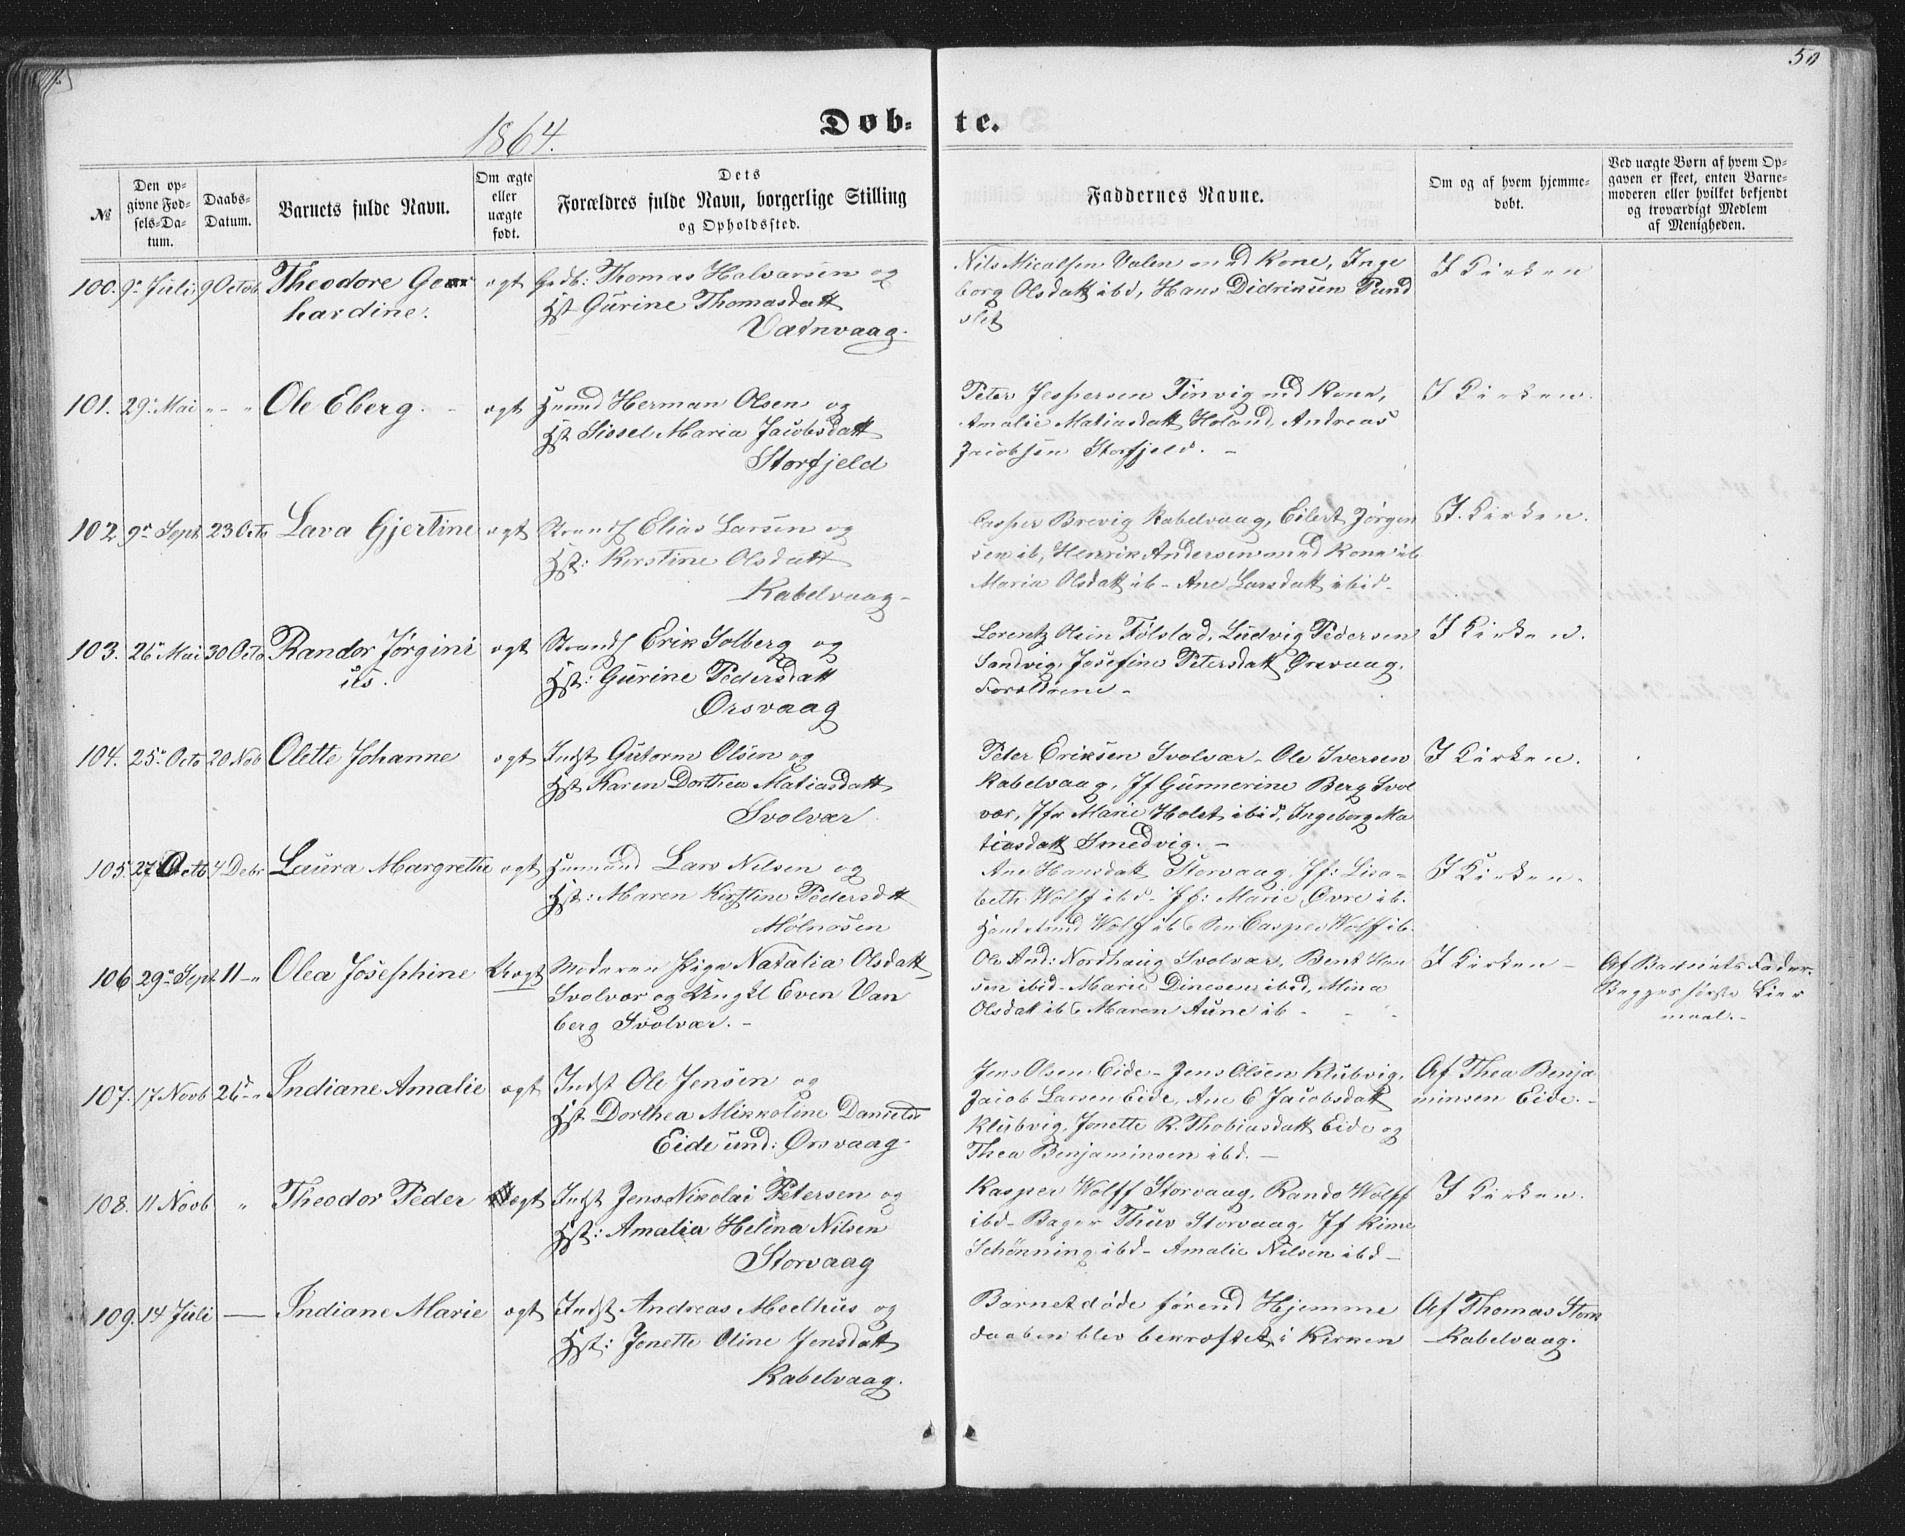 50
1864.
Døb- te.
№
Den opgivne Fødsels-Datum.
Daabs-Datum.
Barnets fulde Navn.
Om ægte eller uægte født.
Dets Forældres fulde Navn, borgerlige Stilling og Opholdssted.
Faddernes Navne.
Om og af hvem hjemmedøbt.
Ved uægte Børn af hvem Opgaven er skeet, enten Barnemoderen eller hvilket bekjendt og troværdigt Medlem af Menigheden.
100. 9de Juli 9 Octob Theodore Ger
hardine.
ægt Grdb: Thomas Halvarsen og
Hst Gurine Thomasdatt
Vatnvaag.
Nils Micalsen Valen med Kone, Inge
borg Olsdatt ibd, Hans Didriksen Pund
slet
I Kirken
101. 29. Mai " - " Ole Eberg. -
ægt Huusmd Herman Olsen og
Hst Sissel Maria Jacobsdatt
Storfjeld
Peter Jespersen Finvig md Kone,
Amalie Matiasdatt Holand, Andreas
Jacobsen Storfjeld. -
I Kirken.
102. 9de Sept. 23 Octo Lava Gjertine
ægt Strands Elias Larsen og
Hst: Kirstine Olsdatt
Kabelvaag -
Casper Brevig Kabelvaag, Eilert Jørgen
sen ib, Henrik Andersen med Kone ib
Maria Olsdatt ib - Ane Larsdatt ibid -
I Kirken.
103. 26de Mai 30 Octo Randor Jørgini
us.
ægt Strands Erik Solberg og
Hst: Gurine Pedersdatt
Ørsvaag
Lorentz Olsen Følstad, Ludvig Pedersen
Sandvig, Josefine Petersdatt Ørsvaag,
Forældrene -
I Kirken.
104. 25de Octo 20 Nob Olette Johanne
ægt Indst Gutorm Olsen og
Hst Karen Dorthea Matiasdatt
Svolvær
Peter Eriksen Svolvær - Ole Iversen
Kabelvaag, Jf Gunnerine Berg Svol
vær, Jfr Marie Holst ibid, Ingeborg Ma
tiasdatt Smedvig. -
I Kirken.
105. 27 Octb 4 Debr Laura Margrethe
ægt Huusmd Lars Nilsen og
Hst: Maren Kirstine Pedersdtt
Mølnosen
Ane Hansdatt Storvaag, Jf: Lisa-
beth Wolff ibd - Jf: Marie Øvre ib.
Handelsmd Wolff ib & Søn Casper Wolff ib
I Kirken -
106. 29de Sept 11 - " Olea Josephine
Uægt Moderen Pige Natalia Olsdatt
Svolvær og Ungkl Even Van
berg Svolvær. -
Ols And: Nordhaug Svolvær, Bent Han
sen ibid - Marie Dinesen ibid, Mina
Olsdatt ib & Maren Aune ib -
I Kirken -
Af Barnets Fader.
Begges første Leier
maal. -
107. 17 Novb 26de - " Indiane Amalie
ægt Indst Ole Jensen og
Hst Dorthea Mikkoline Daniels
Eide und: Ørsvaag -
Jens Olsen Eide - Jens Olsen Klubvig,
Jacob Larsen Eide, Ane E Jacobsdatt
Klubvig, Jonette R. Thobiasdatt Eide og
Thea Benjaminsen ibd. -
Af Thea Benja
minsen Eide. -
108. 11 Novb " Theodor Peder
ægt Indst Jens Nikolai Petersen og
Hst: Amalia Helena Nilsen
Storvaag
Kasper Wolff Storvaag, Rando Wolff
ibd - Bager Thuv Storvaag, Jf Kime
Schønning ibd - Amalie Nilsen ibd -
I Kirken.
109. 14 Juli — Indiane Marie
ægt Indst Andreas Meelhus og
Hst: Jonette Oline Jensdatt
Kabelvaag.
Barnet døde førend Hjemme
daaben blev bekræftet i Kirken
Af Thomas Stork
Kabelvaag.